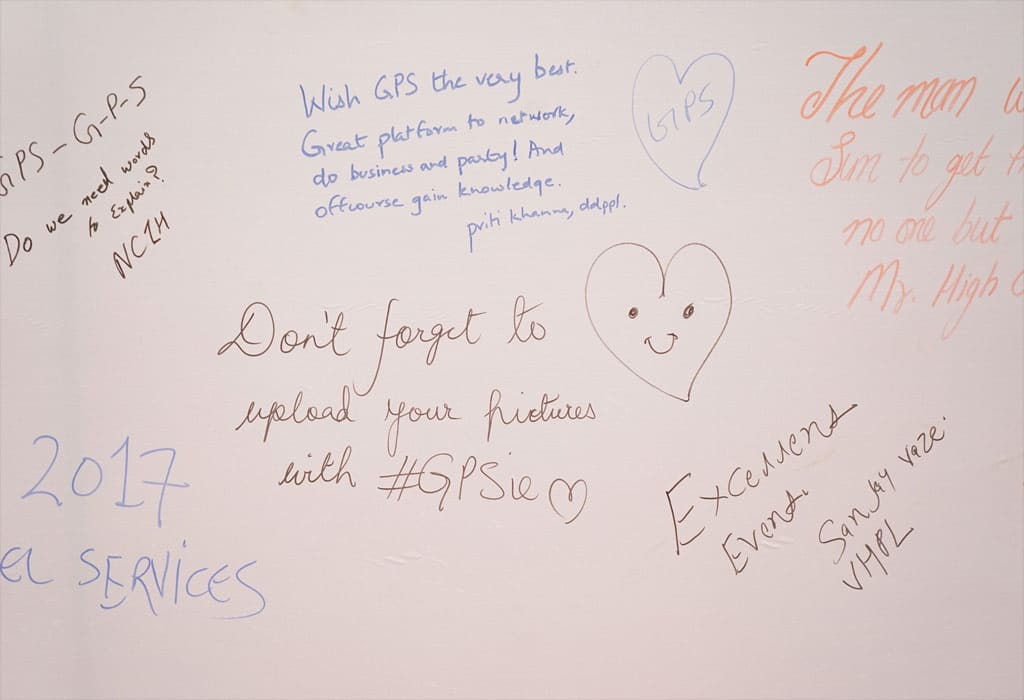 GPS-G-P-S
Do we need words
to Explain?
NCIH
Wish GPS the very best.
Great platform to network,
do business and party! And
offcourse gain knowledge.
priti khanna, ddppl.
GPS
The man
Sim to get
no one but
Mr. High
Don't forget to
upload your pictures
with #GPSie
2017
EL SERVICES
Excellent
Event.
Sanjay Vaze.
VHPL